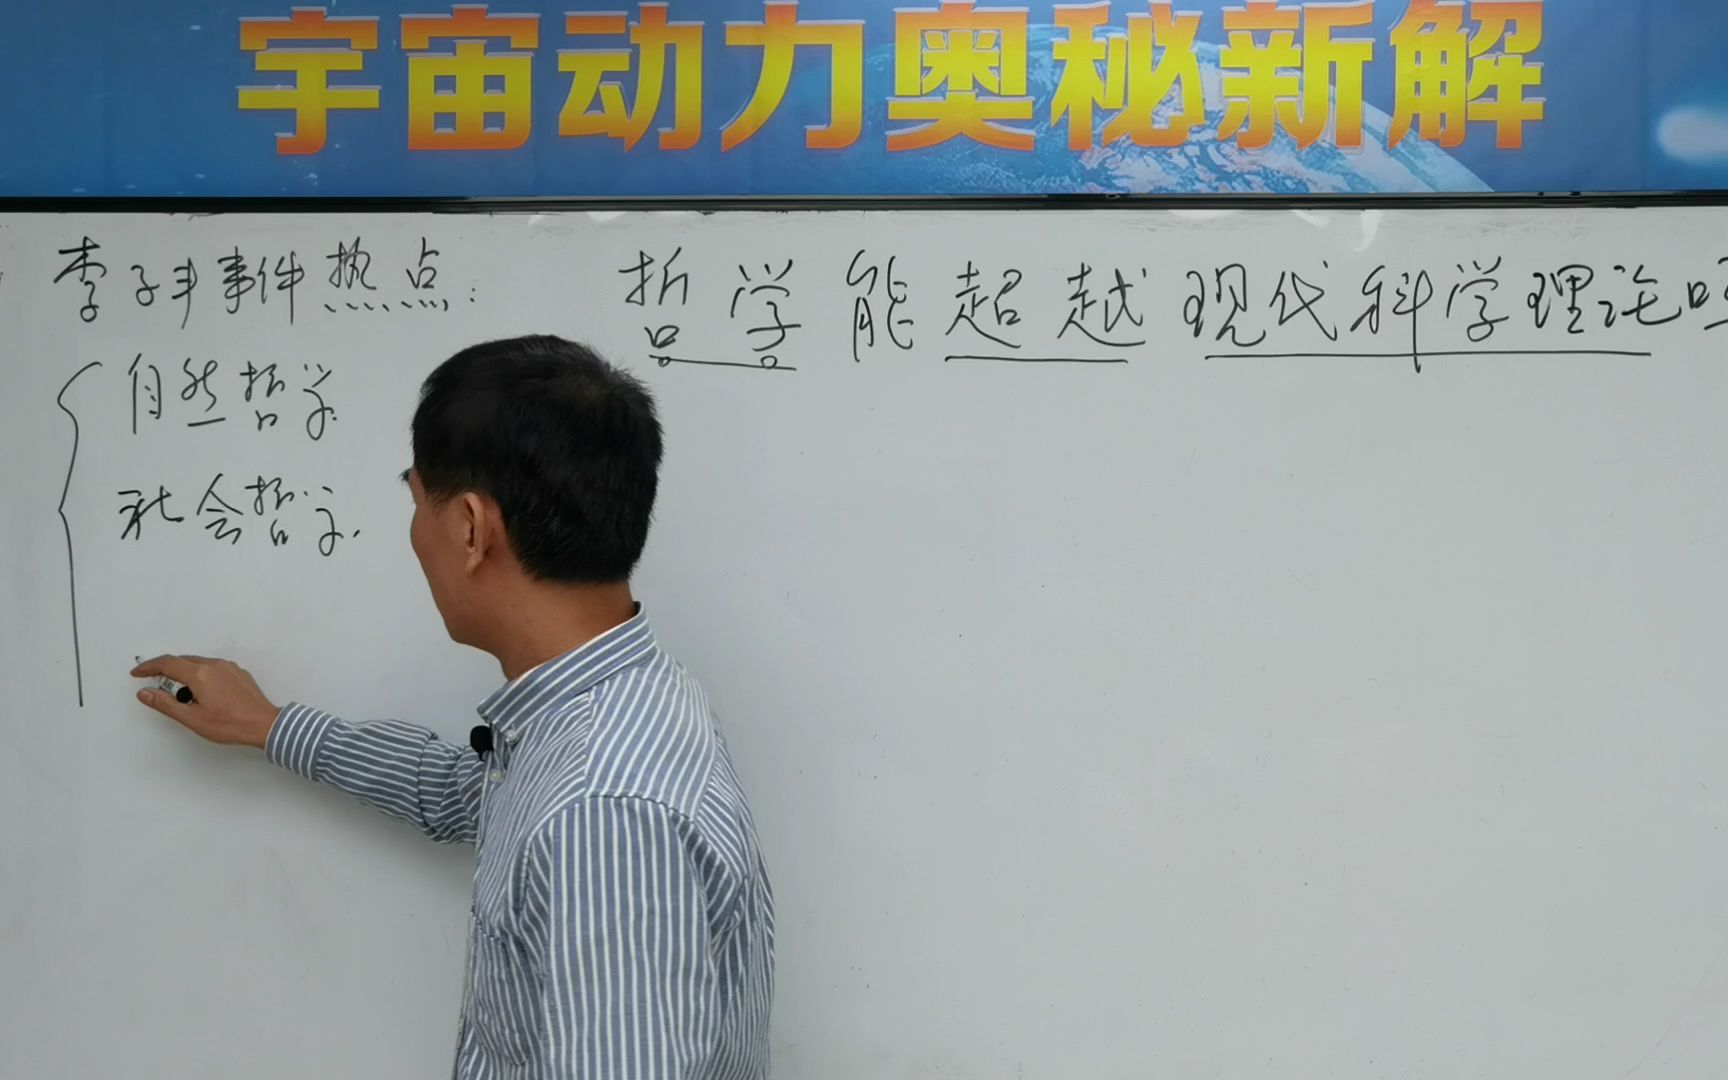 宇宙动力奥秘新解
李子丰事件热点: 哲学能超越现代科学理论吗
自然哲学
社会哲学